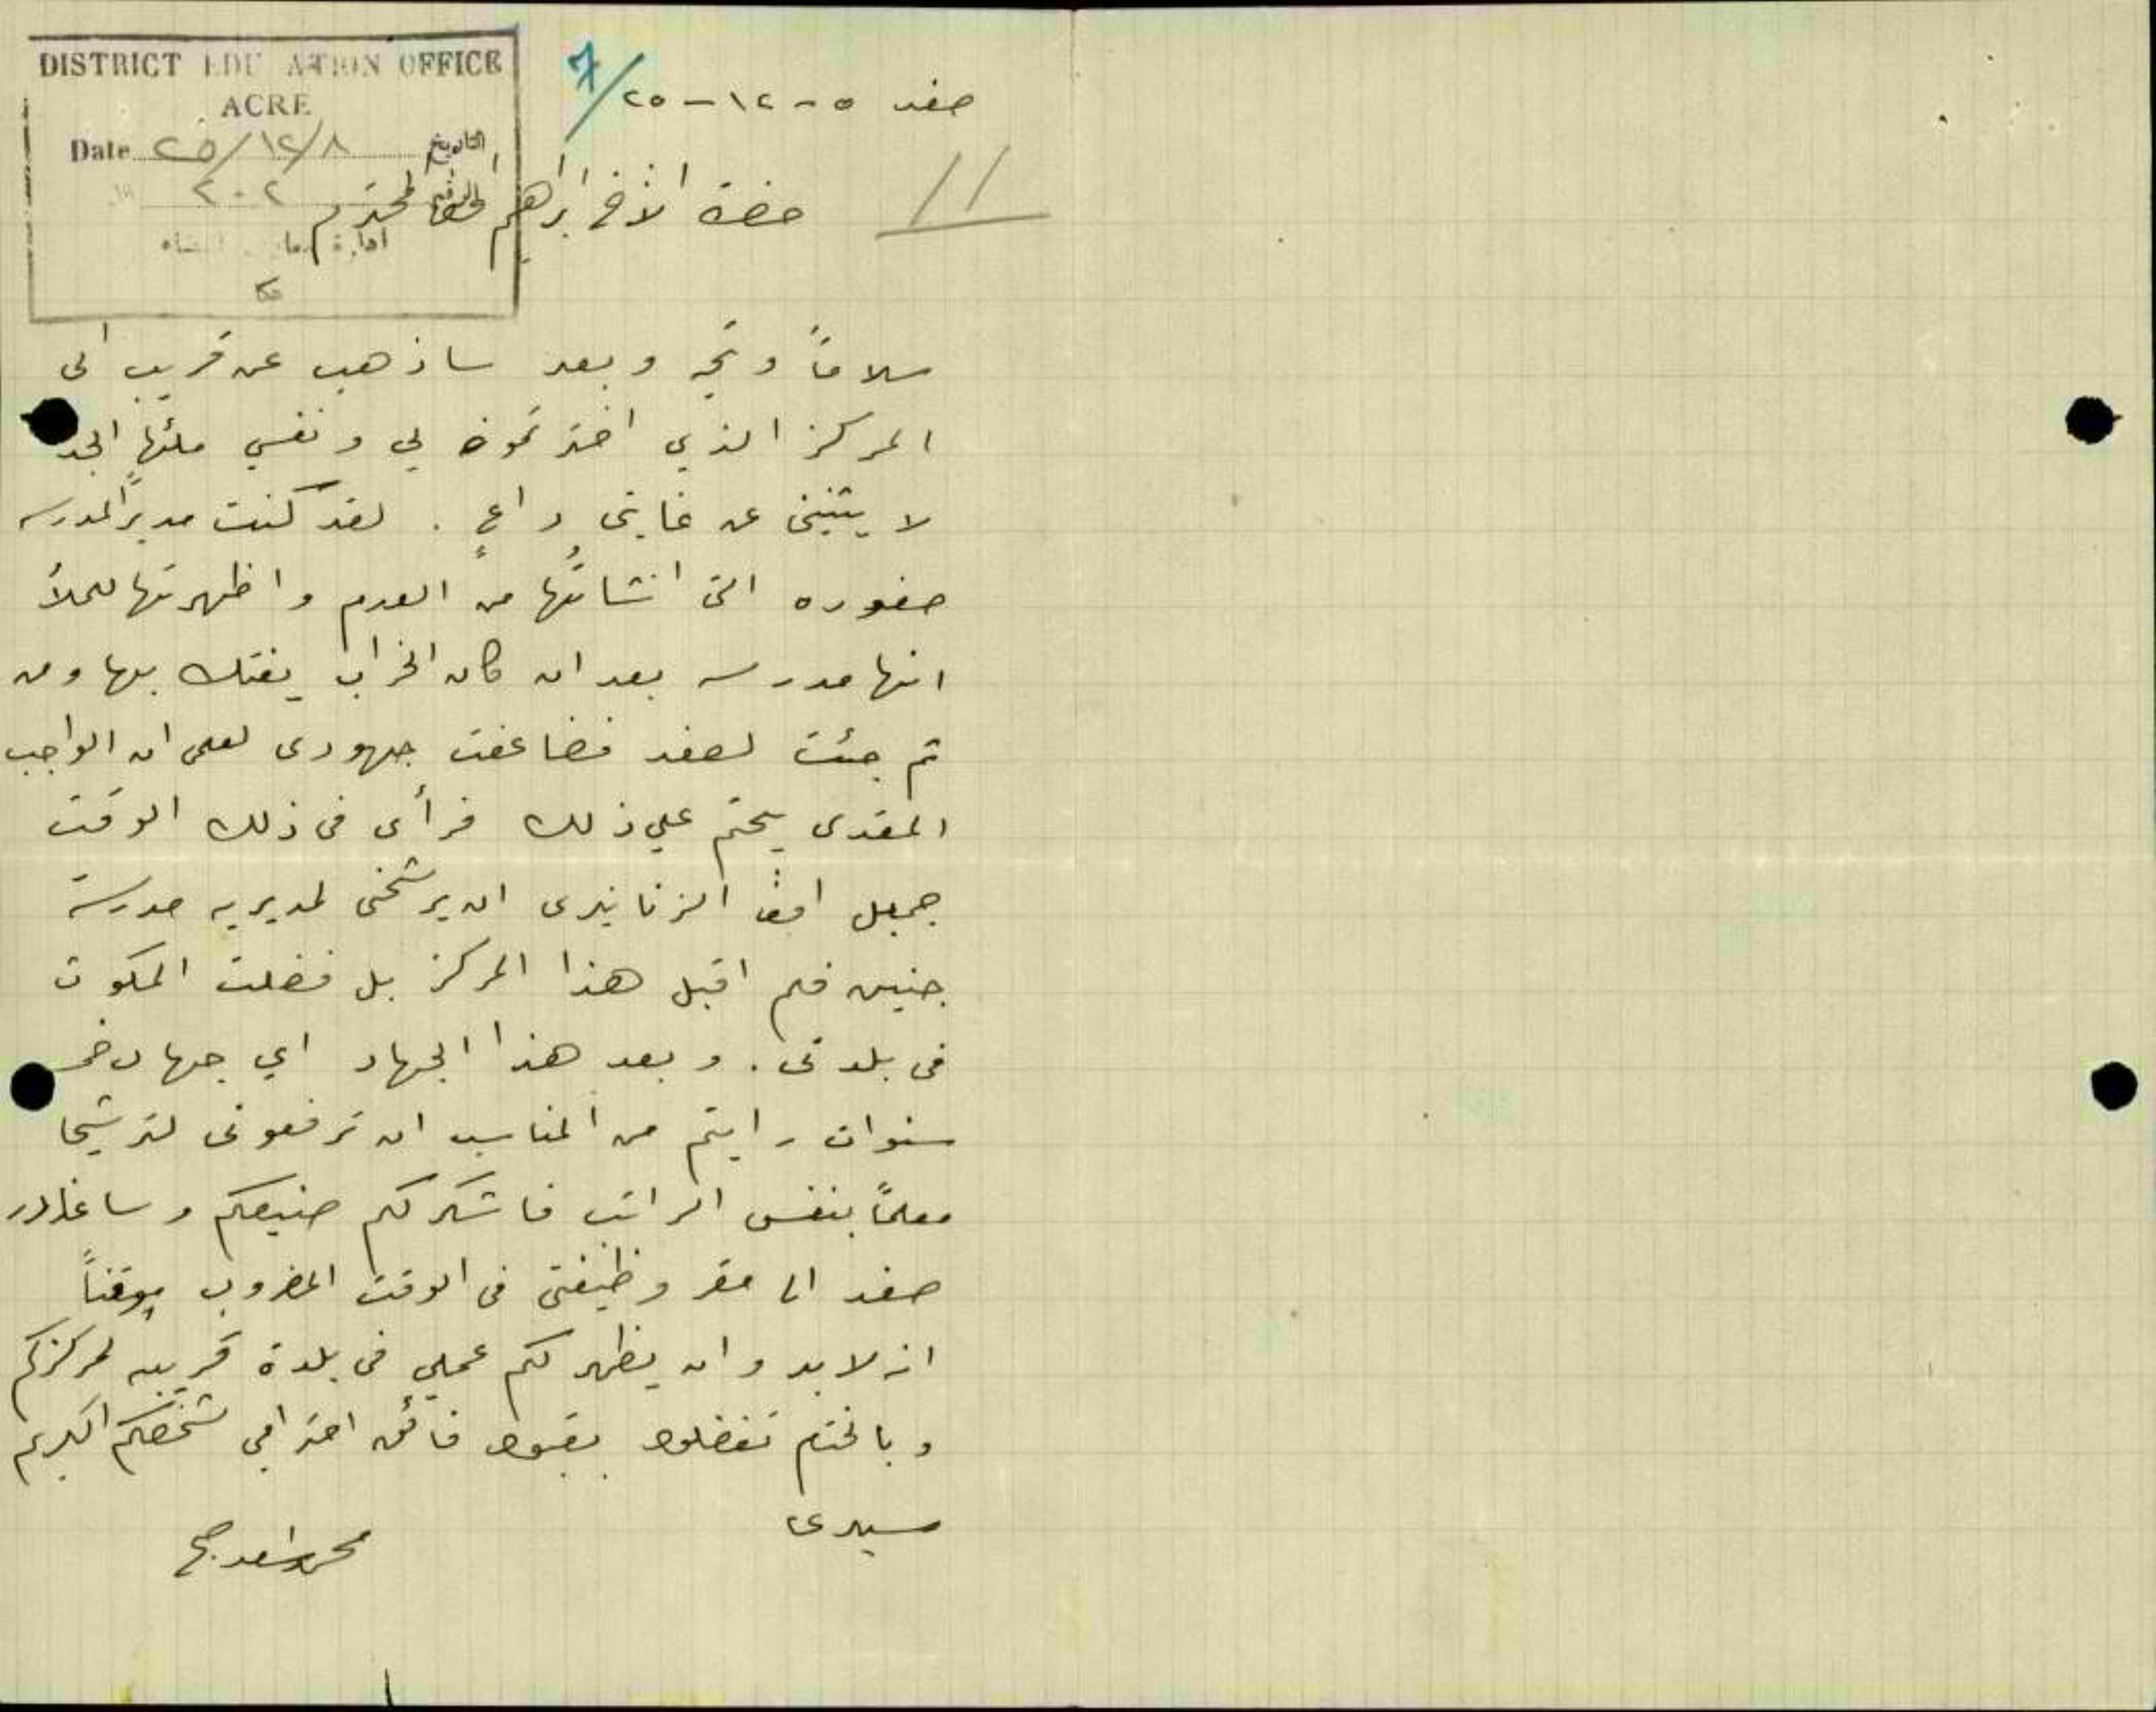 DISTRICT EDU ATION OFFICE
ACRE
Date ٢٥/١٢/٨ التاريخ
٢٠٢ الرقم
ادارة
عكا
7/
صفد ٥-١٢-٢٥
11
حضرة الاخ ابراهيم المحترم
سلاماً وتحيه وبعد ساذهب عن قريب الى
المركز الذي اخترتموه لي ونفسي ملئها الجد
لا يثنيني عن غايتي داعٍ . لقد كنت مديرًا لمدرسه
صفوره التي انشاتُها من العدم واظهرتها للملأ
انها مدرسه بعد ان كان الخراب يفتك بها ومن
ثم جئت لصفد فضاعفت جهودى لعلمى ان الواجب
المقدس يحتم علي ذلك فرأى فى ذلك الوقت
جميل افندي الزنانيرى ان يرشحنى لمديريه مدرسة
جنين فلم اقبل هذا المركز بل فضلت المكوث
فى بلدتى . وبعد هذا الجهاد اي جهاد خمس
سنوات رايتم من المناسب ان ترفعونى لترشيحا
معلمًا بنفس الراتب فاشكر لكم صنيعكم وساغادر
صفد الى مقر وظيفتى فى الوقت المضروب موقناً
انه لا بد وان يظهر لكم عملي فى بلدة قريبه لمركزكم
وبالختام تفضلوا بقبول فائق احترامي لشخصكم الكريم
سيدى
محمد اسعد